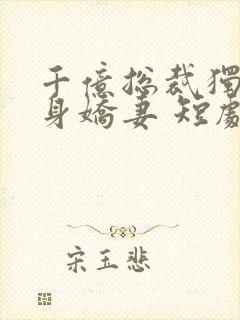 千億總裁獨
身嬌妻 短劇
宋玉悲